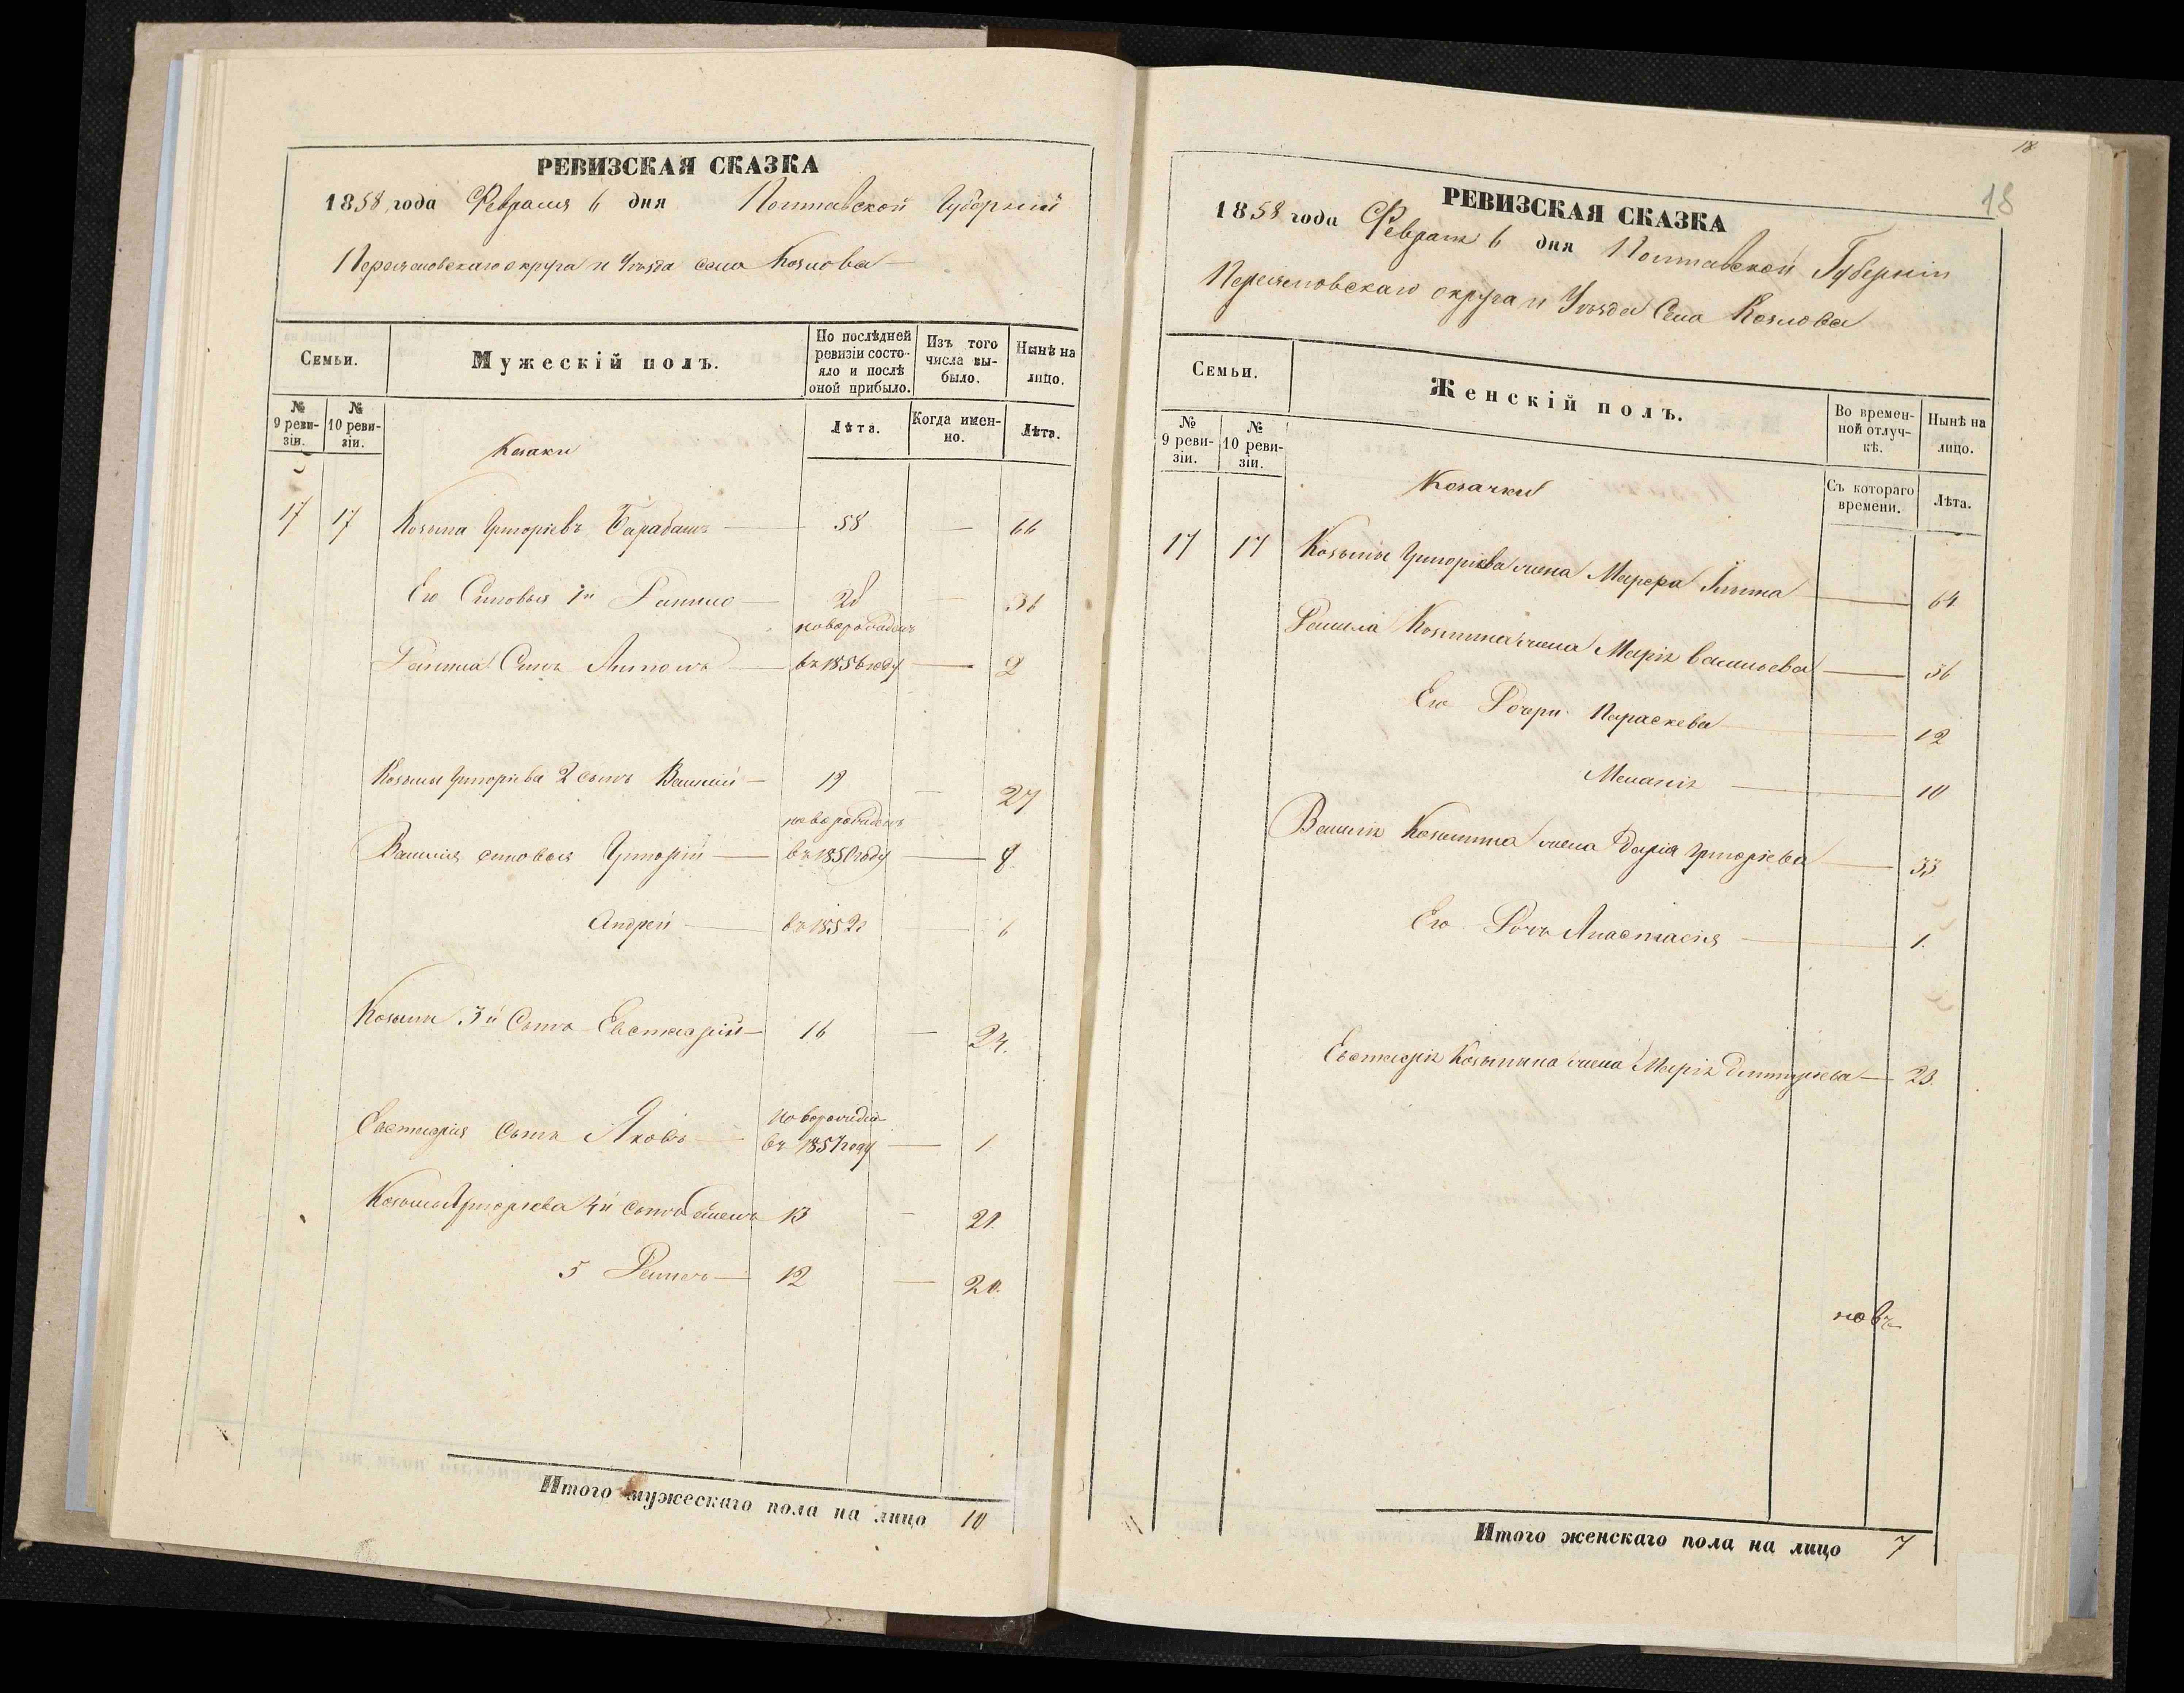 РЕВИЗСКАЯ СКАЗКА
1858 года Февраля 6 дня Полтавской Губернии
Переяславского округа и Уѣзда села Козлова
Семьи.
Мужескій полъ.
По послѣдней ревизіи состояло и послѣ оной прибыло.
Изъ того числа выбыло.
Нынѣ на лицо.
№ 9 ревизіи.
№ 10 ревизіи.
Лѣта.
Когда именно.
Лѣта.
Козаки
17 17 Козьма Григорьевъ Барабашъ 58 — 66
Его Сыновья 1й Данило 28 — 36
новорожденъ
Данила Сынъ Антонъ въ 1856 году — 2
Козьмы Григорьева 2 сынъ Василий 19 — 27
новорожденъ
Василия сыновья Григорій въ 1850 году — 8
Андрей въ 1852 — 6
Козьмы 3й Сынъ Евстафій 16 — 24.
новорожден
Евстафія Сынъ Яковъ въ 1857 году — 1
Козьмы Григорьева 4й сынъ Семенъ 13 — 21.
5 12 — 20.
Итого мужескаго пола на лицо 10
18
18
РЕВИЗСКАЯ СКАЗКА
1858 года Февраля 6 дня Полтавской Губерніи
Переяславского округа и Уѣзда Села Козлова
Семьи.
Женскій полъ.
Во временной отлучкѣ.
Нынѣ на лицо.
№ 9 ревизіи.
№ 10 ревизіи.
Съ котораго времени.
Лѣта.
Козачки
17 17 Козьмы Григорьева жена Марфа 64
Данила Козьмина жена Марія Васильева 36
Его Дочери Параскева 12
Меланія 10
Василія Козьмина жена Дарія Григорьева 33
Его Дочь Анастасія 1.
Евстафія Козьмина жена Марія Дмитріева 23.
новъ
Итого женскаго пола на лицо 7